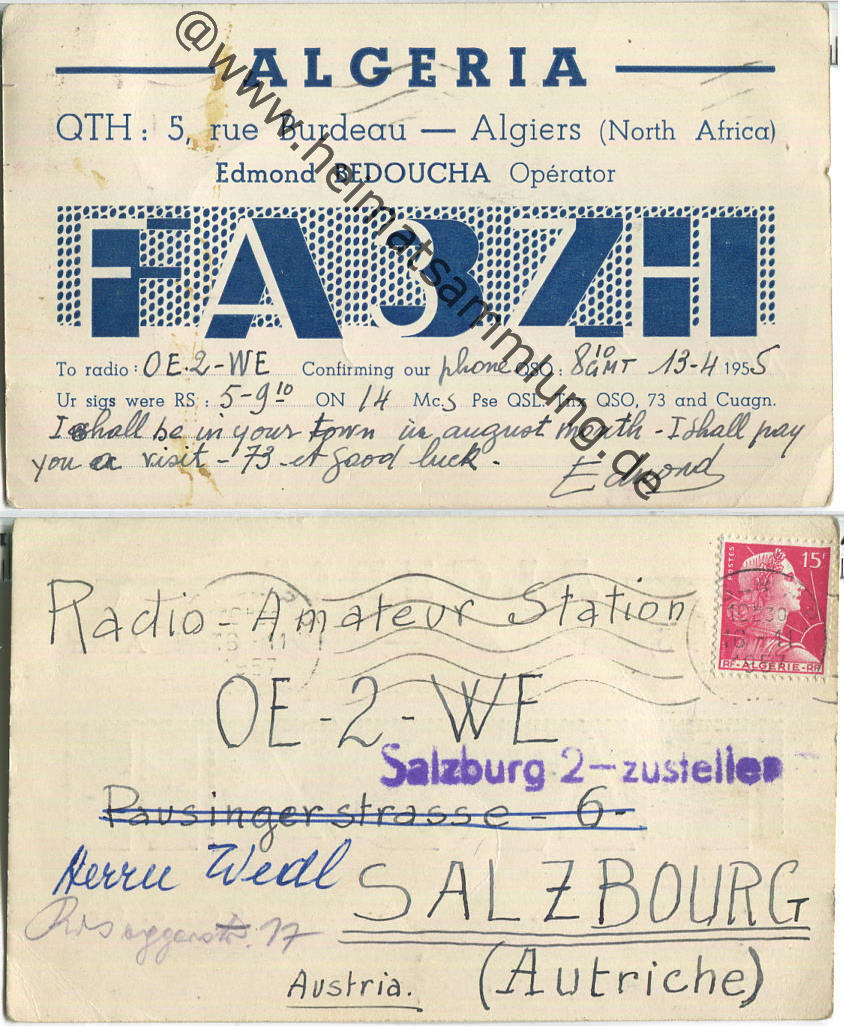 ALGERIA
QTH : 5, rue Burdeau — Algiers (North Africa)
Edmond BEDOUCHA Opérator
FA3ZH
To radio : OE-2-WE Confirming our phone QSO : 8 10 GMT 13-4 1955
Ur sigs were RS : 5-9 10 ON 14 Mc.s Pse QSL. Tnx QSO, 73 and Cuagn.
I shall be in your town in august month - I shall pay
you a visit - 73 et good luck.
Edmond
@www.heimatsammlung.de
15F
POSTES
1957
RF-ALGERIE-RF
Radio-Amateur Station
OE-2-WE
Salzburg 2-zusteller
Pausingerstrasse - 6-
Herrn Wedl
SALZBOURG
17
(Autriche)
Austria.